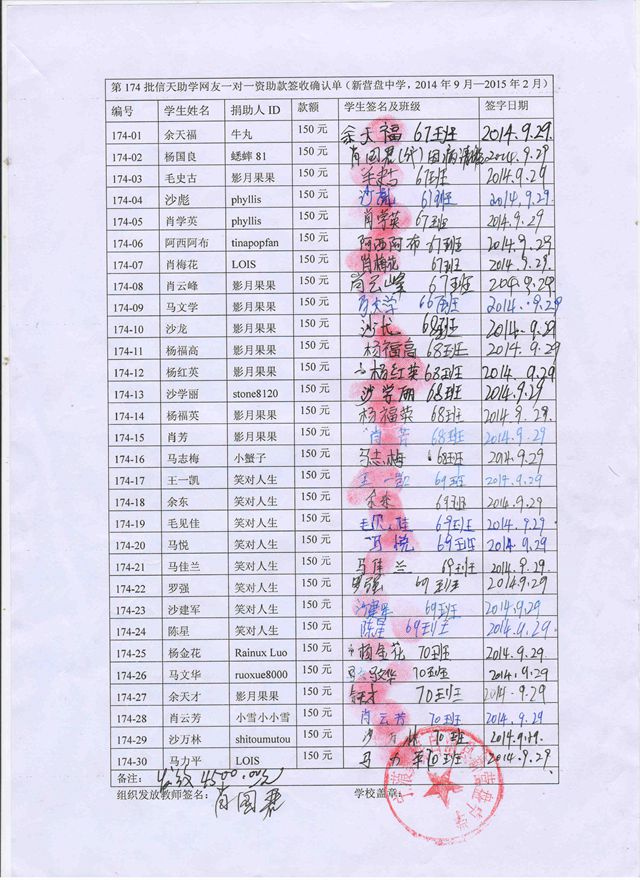 第 174 批信天助学网友一对一资助款签收确认单（新营盘中学，2014 年 9 月—2015 年 2 月）
编号 学生姓名 捐助人 ID 款额 学生签名及班级 签字日期
174-01 余天福 牛丸 150 元 余天福 67班 2014.9.29
174-02 杨国良 蟋蟀 81 150 元 肖国君(代) 因病请假 2014.9.29
174-03 毛史古 影月果果 150 元 毛史古 67班 2014.9.29
174-04 沙彪 phyllis 150 元 沙彪 67班 2014.9.29
174-05 肖学英 phyllis 150 元 肖学英 67班 2014.9.29
174-06 阿西阿布 tinapopfan 150 元 阿西阿布 67班 2014.9.29
174-07 肖梅花 LOIS 150 元 肖梅花 67班 2014.9.29
174-08 肖云峰 影月果果 150 元 肖云峰 67班 2014.9.29
174-09 马文学 影月果果 150 元 马文学 2014.9.29
174-10 沙龙 影月果果 150 元 沙龙 68班 2014.9.29
174-11 杨福高 影月果果 150 元 杨福高 68班 2014.9.29
174-12 杨红英 影月果果 150 元 杨红英 68班 2014.9.29
174-13 沙学丽 stone8120 150 元 沙学丽 68班 2014.9.29
174-14 杨福英 影月果果 150 元 杨福英 68班 2014.9.29
174-15 肖芳 影月果果 150 元 肖芳 68班 2014.9.29
174-16 马志梅 小蟹子 150 元 马志梅 68班 2014.9.29
174-17 王一凯 笑对人生 150 元 王一凯 69班 2014.9.29
174-18 余东 笑对人生 150 元 余东 69班 2014.9.29
174-19 毛见佳 笑对人生 150 元 毛见佳 69班 2014.9.29
174-20 马悦 笑对人生 150 元 马悦 69班 2014.9.29
174-21 马佳兰 笑对人生 150 元 马佳兰 69班 2014.9.29
174-22 罗强 笑对人生 150 元 罗强 69班 2014.9.29
174-23 沙建军 笑对人生 150 元 沙建军 69班 2014.9.29
174-24 陈星 笑对人生 150 元 陈星 69班 2014.9.29
174-25 杨金花 Rainux Luo 150 元 杨金花 70班 2014.9.29
174-26 马文华 ruoxue8000 150 元 马文华 70班 2014.9.29
174-27 余天才 影月果果 150 元 余天才 70班 2014.9.29
174-28 肖云芳 小雪小小雪 150 元 肖云芳 70班 2014.9.29
174-29 沙万林 shitoumutou 150 元 沙万林 70班 2014.9.29
174-30 马力平 LOIS 150 元 马力平 70班 2014.9.29
备注： 4500.00元
组织发放教师签名： 肖国君 学校盖章：